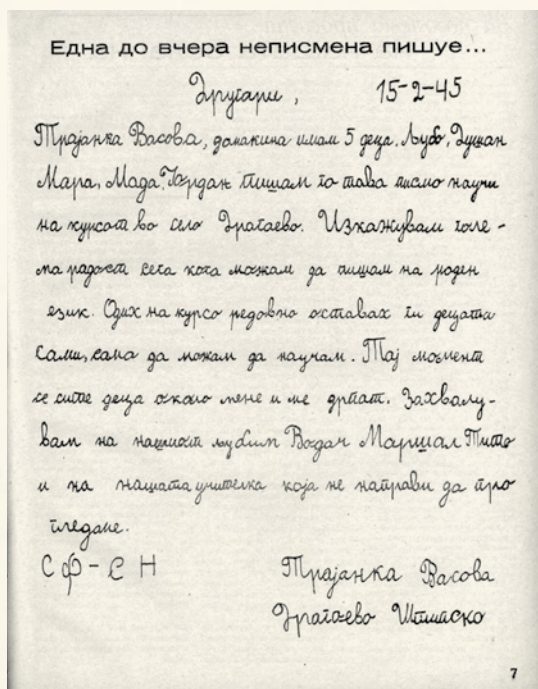 Една до вчера неписмена пишуе...
Другари, 15-2-45
Трајанка Васова, домакина имам 5 деца. Љубо, Душан
Мара, Мада. Јордан пишам го това писмо научи
на курсот во село Драгаево. Изкажувам голе-
ма радост сега кога можам да пишам на роден
език. Одих на курсо редовно оставах ги децата
сами, само да можам да научам. Тај момент
се сите деца около мене и ме дрпат. Захвалу-
вам на нашиот љубим Водач Маршал Тито
и на нашата учителка која не направи да про
гледаме.
СФ-СН
Трајанка Васова
Драгаево Штипско
7